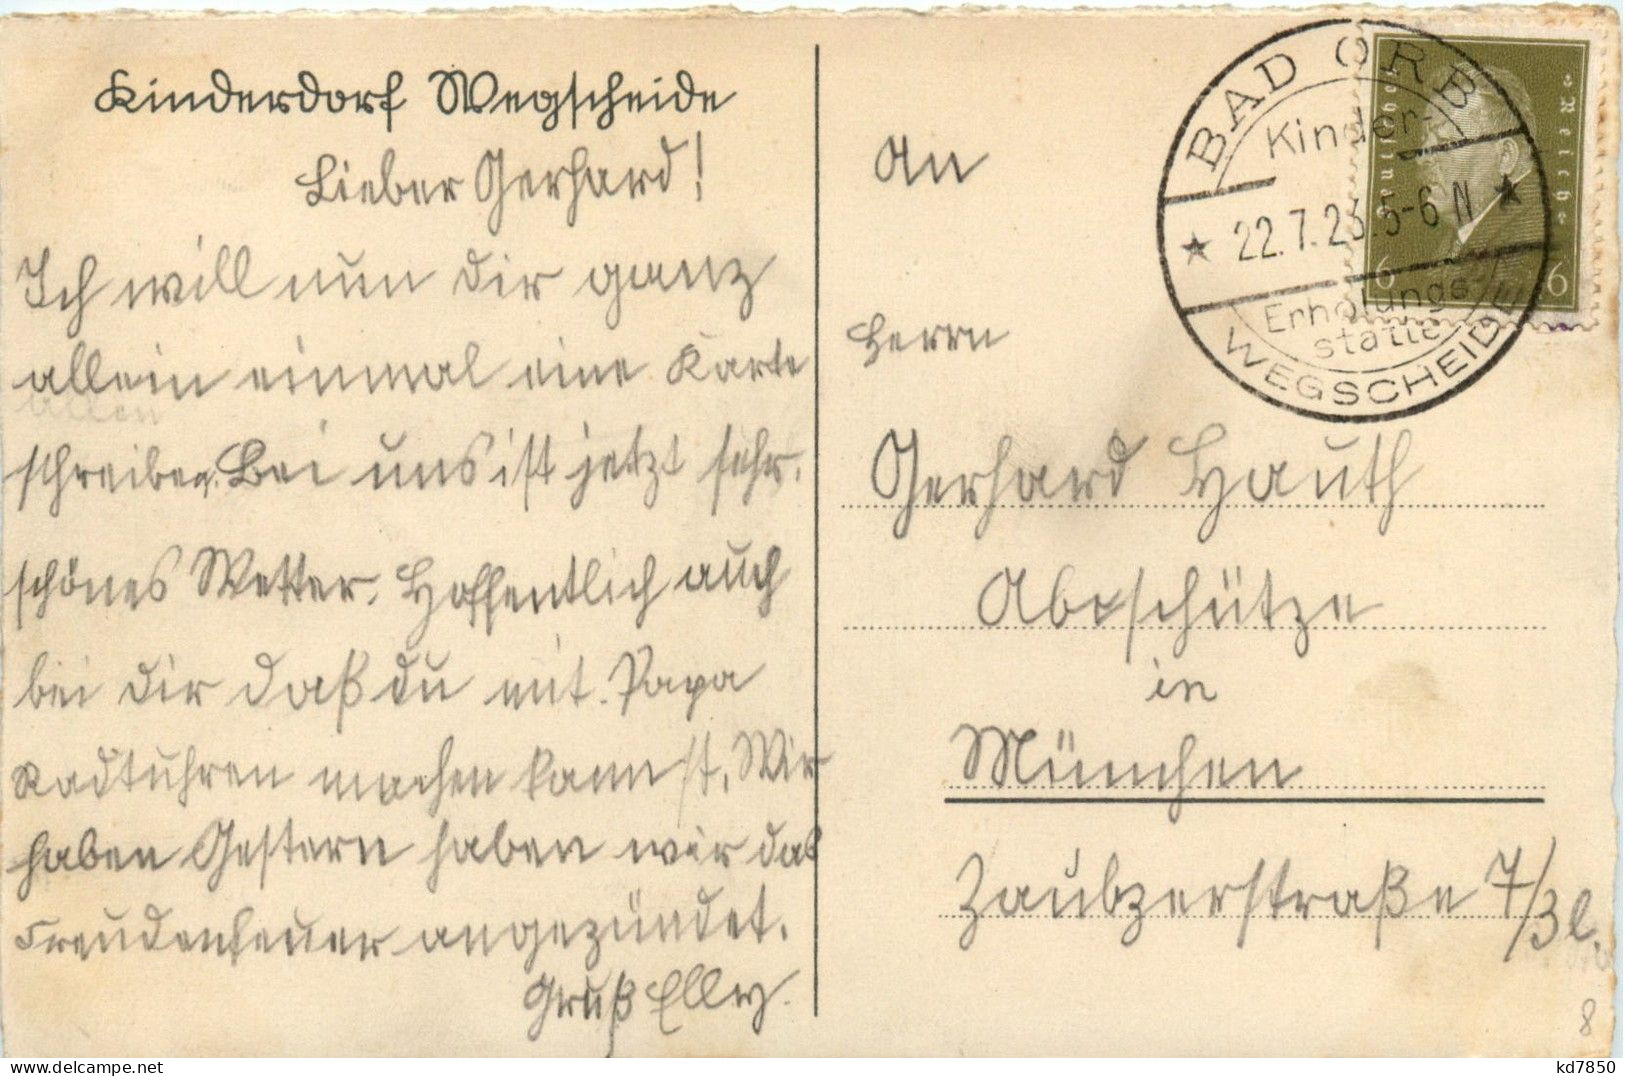 Kinderdorf Wegscheide
Lieber Gerhard!
Ich will nun dir ganz
allein einmal eine Karte
allen
schreiben. Bei uns ist jetzt sehr
schönes Wetter. Hoffentlich auch
bei dir daß du mit Papa
Radtuhren machen kannst. Wir
haben Gestern haben wir das
Freudenfeuer angezündet.
Gruß Elly.
An
Herrn
Gerhard Hauth
Abcschütze
in
München
Zaubzerstraße 7/3 l.
8
BAD ORB
Kinder-
22.7. 5-6 N
Erholungs-
stätte
WEGSCHEIDE
Deutsches
Reich
6 6
kd7850